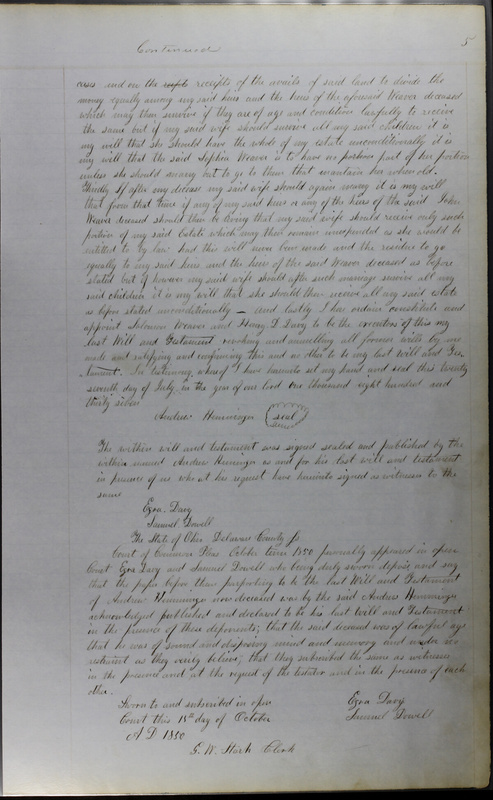 Continued
5
cases and on the receipts of the avails of said land to divide the
money equally among my said heirs and the heirs of the aforesaid Weaver deceased
which may then survive if they are of age and condition lawfully to receive
the same but if my said wife should survive all my said children it is
my will that she should have the whole of my estate unconditionally it is
my will that the said Sophia Weaver is to have no portion or part of her portion
unless she should marry but to go to them that maintain her when old.
Thirdly If after my decease my said wife should again marry it is my will
that from that time if any of my said heirs or any of the heirs of the said John
Weaver deceased should then be living that my said wife should receive only such
portion of my said Estate which may then remain unexpended as she would be
entitled to by law had this will never been made and the residue to go
equally to my said heirs and the heirs of the said Weaver deceased as before
stated but if however my said wife should after such marriage survive all my
said children it is my will that she should then receive all my said estate
as before stated unconditionally — And lastly I here ordain constitute and
appoint Solomon Weaver and Henry D Davy to be the executors of this my
Last Will and Testament revoking and annulling all former wills by me
made and ratifying and confirming this and no other to be my last will and Tes-
tament. In testimony whereof I have hereunto set my hand and seal this twenty
seventh day of July in the year of our lord One thousand eight hundred and
thirty seven
Andrew Hemminger (seal)
The within will and testament was signed sealed and published by the
within named Andrew Heminger as and for his last will and testament
in presence of us who at his request have hereunto signed as witnesses to the
same
Ezra Davy
Samuel Dowell
The State of Ohio Delaware County Ss
Court of Common Pleas October term 1850 personally appeared in open
Court Ezra Davy and Samuel Dowell who being duly sworn depose and say
that the paper before them purporting to be the last Will and Testament
of Andrew Hemminger now deceased was by the said Andrew Hemminger
acknowledged published and declared to be his last Will and Testament
in the presence of these deponents; that the said deceased was of lawful age
that he was of sound and disposing mind and memory and under no
restraint as they verily believe; that they subscribed the same as witnesses
in the presence and at the request of the testator and in the presence of each
other.
Sworn to and subscribed in open Ezra Davy
Court this 18th day of October Samuel Dowell
A D 1850
G. W. Stark Clerk